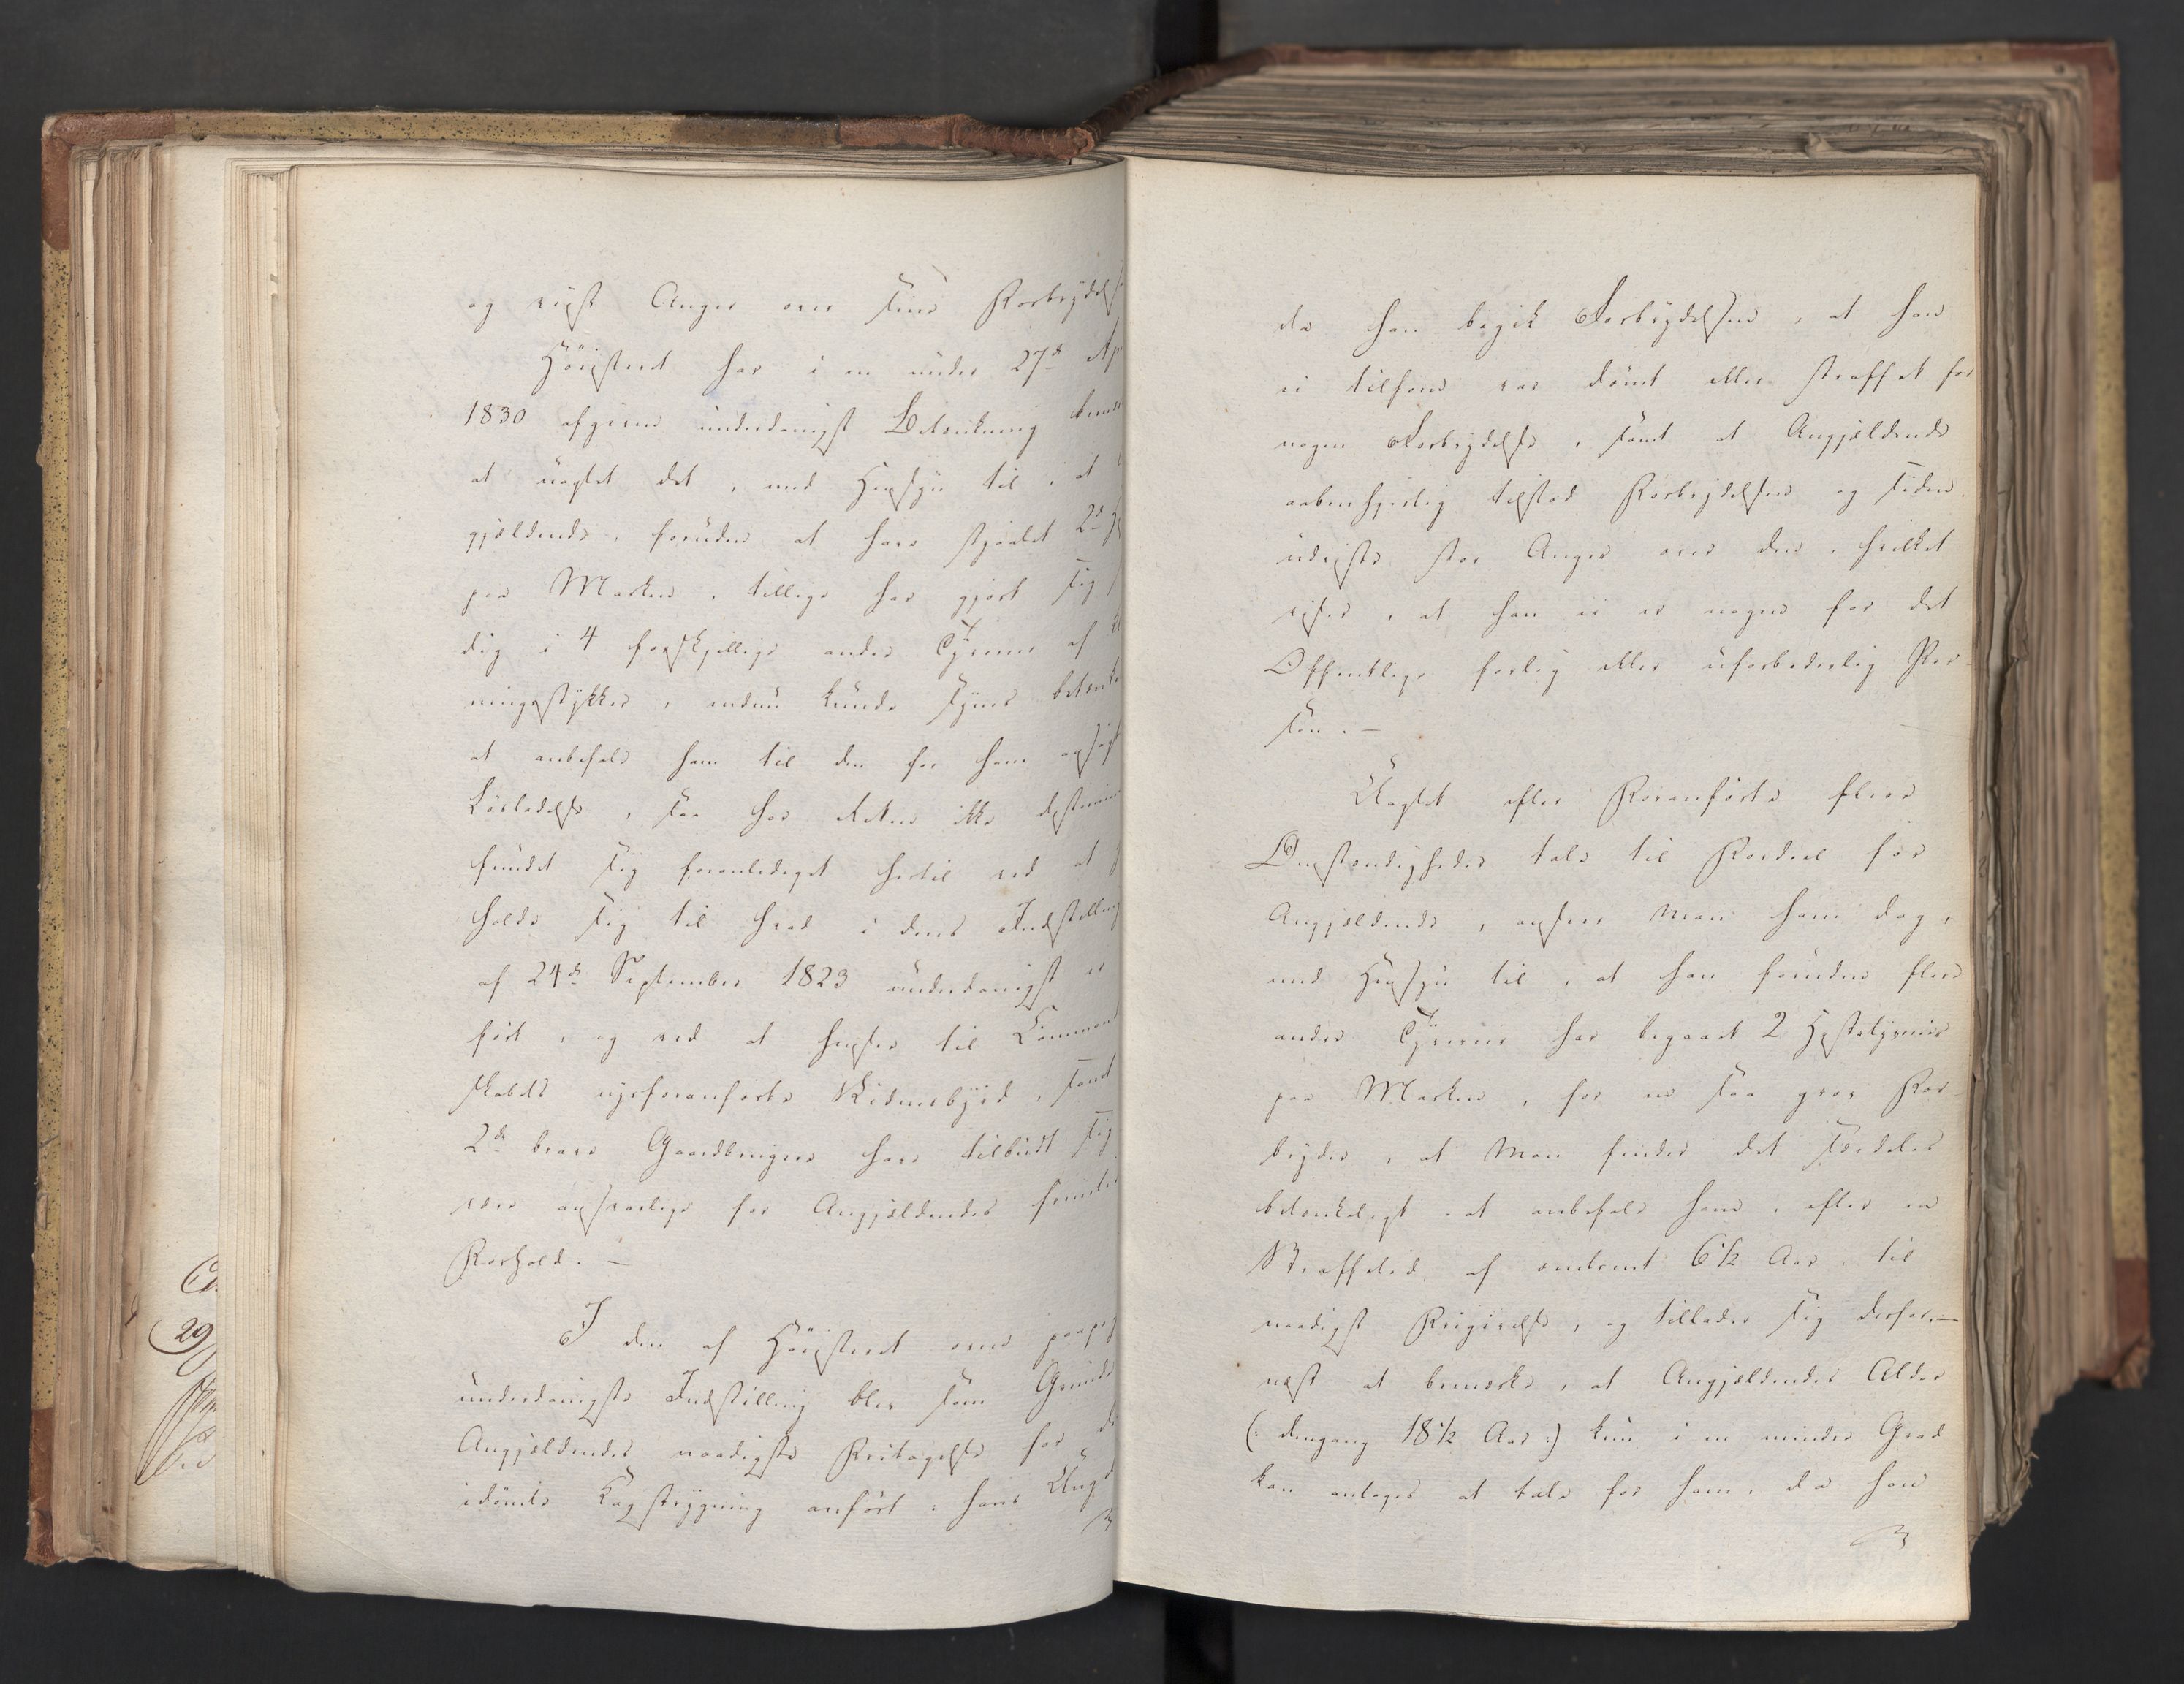 og viist Anger over sine Forbrydels
Höiesteret har i en under 27d Ap
1830 afgiven underdanigst Betænkning bemær
at uagtet det, med Hensyn til, at
gjældende, foruden at have stjaalet 2de
paa Marken, tillige har gjort sig
dig i 4 forskjellige andre Tyverier af
ningsstykker, endnu kunde synes betænke
at anbefale ham til den for ham ansögt
Lösladelse, saa har Retten ikke destomin
fundet sig foranlediget hertil ved at
holde sig til hvad i dens Indstilling
af 24de September 1823 underdanigst er
fört, og ved at hense til Command
skabets nysforanförte Vidnesbyrd, samt
2de brave Gaardbrugere have tilbudt sig
være ansvarlige for Angjældendes
Forhold. —
I den af Höiesteret saaledes
underdanigste Indstilling blev som Grunde
Angjældendes naadigste Fritagelse for de
idömte Kagstrygning anfört: hans Ung
da han begik Forbrydelsen, at han
ei tilforn var dömt eller straffet for
nogen Forbrydelse, samt at Angjældende
aabenhjertig tilstod Forbrydelsen og siden
udviste stor Anger over den, hvilket
viser, at han ei er nogen for det
Offentlige farlig eller uforbederlig Per-
son. —
Uagtet efter Foranförte flere
Omstændigheder tale til Fordeel for
Angjældende, anseer Man ham dog,
med Hensyn til, at han foruden flere
andre Tyverier har begaaet 2 Hestetyverier
paa Marken, for en saa grov For
bryder, at Man finder det særdeles
betænkeligt at anbefale ham, efter en
Straffetid af omtrent 6 1/2 Aar til
naadigst Frigivelse, og tillader sig derfor-
næst at bemærke, at Angjældendes Alder
(: dengang 18 1/2 Aar :) kun i en mindre Grad
kan antages at tale for ham, da han